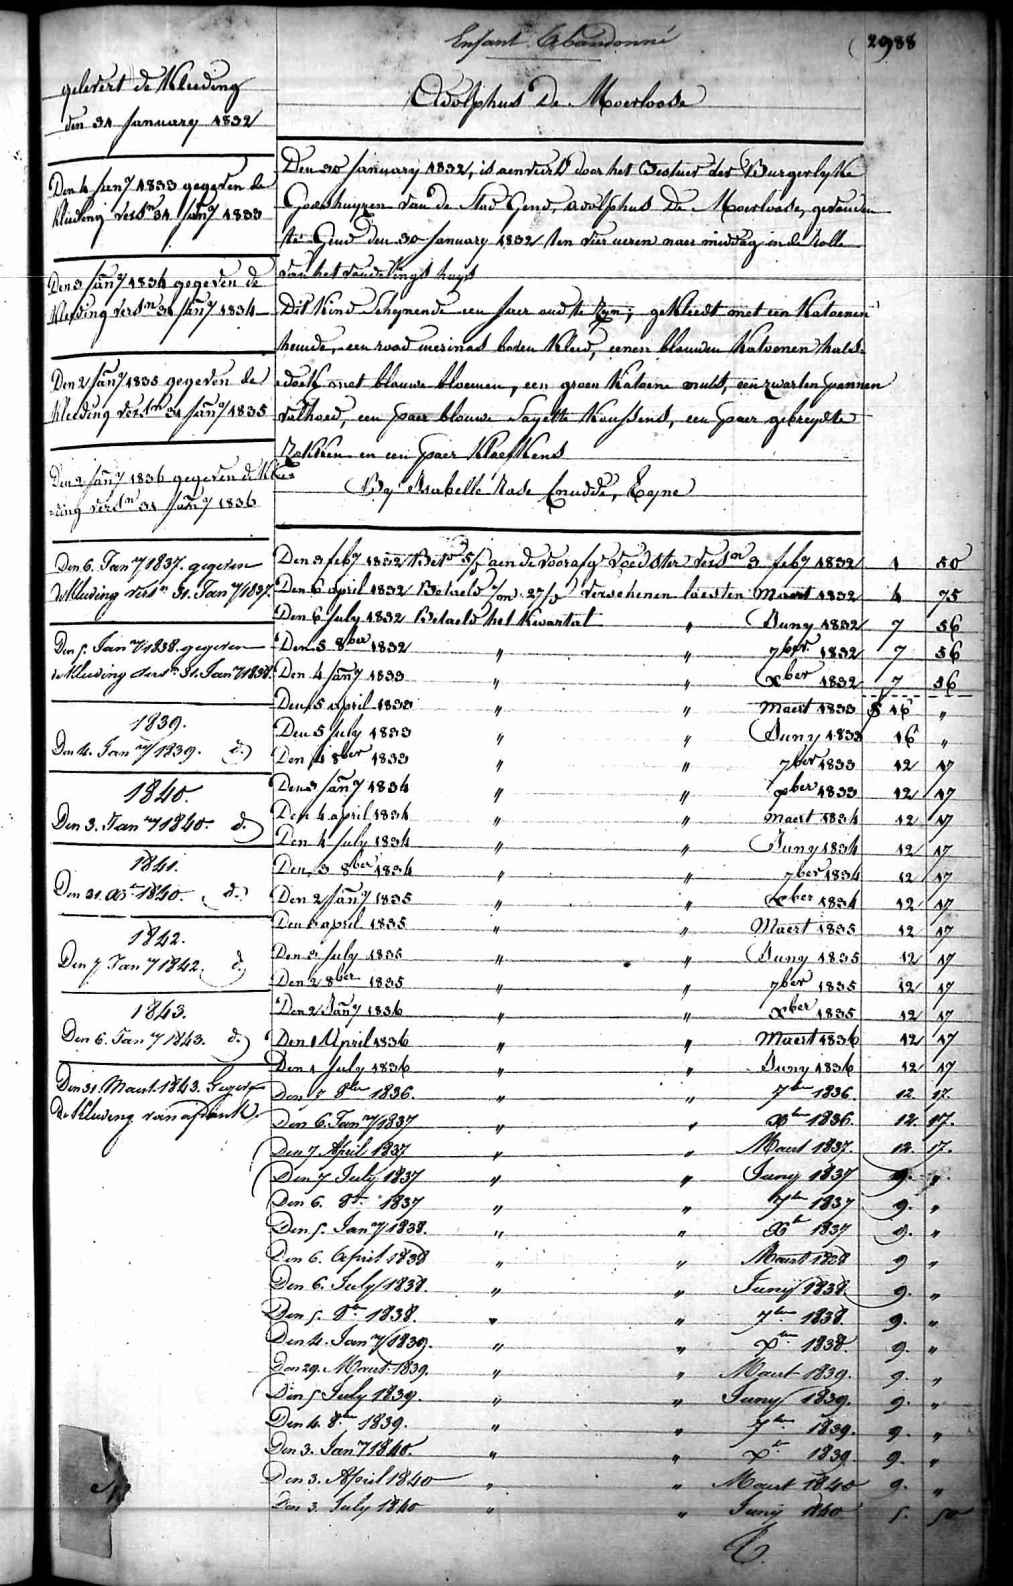 Enfant Abandonné
2988
gelevert de Kleeding
den 31 January 1832
Adolphus De Moerloose
Den 30 January 1832, is aenveerd door het Bestier der Burgerlyke
Godshuyzen van de Stad Gend, Adolphus De Moerloose, gevonden
te Gend den 30 January 1832 ten vier ueren naer middag in de rolle
van het vondelings huys
Dit Kind schynende een jaer oud te zyn, gekleedt met een Katoenen
hemde, een rood merinos boven Kleed, eenen blauwen Katoenen hals-
doek met blauwe bloemen, een groen Katoene muts, een zwarten pannen
valhoed, een paer blauwe Sayette Koussens, een paer gebreyde
zokken en een paer Kloefkens
By Isabelle Rose Cnudde, Eyne
Den 4 Jany 1833 gegeven de
Kleeding versn 31 Jany 1833
Den 3 Jany 1834 gegeven de
Kleeding versn 31 Jany 1834
Den 2 Jany 1835 gegeven de
Kleeding versn 31 Jany 1835
Den 2 Jany 1836 gegeven de Klee
ding versn 31 Jany 1836
Den 6. Jany 1837. gegeven
de Kleeding versn 31. Jany 1837.
Den 5. Jany 1838. gegeven
de Kleeding versn 31. Jany 1838.
1839.
Den 4. Jany 1839. do
1840.
Den 3. Jany 1840. do
1841.
Den 31. 1840. do
1842.
Den 7. Jany 1842. do
1843.
Den 6. Jany 1843. do
Den 31. Maert 1843.
de Kleeding van
Den 3 feby 1832 aen de voorafg voedster versn 3 feby 1832 1 50
Den 6 april 1832 Betaeld 27/ verschenen laesten Maert 1832 4 75
Den 6 July 1832 Betaeld het Kwartal " Juny 1832 7 56
Den 5 8ber 1832 " " 7ber 1832 7 56
Den 4 Jany 1833 " " Xber 1832 7 56
Den 5 april 1833 " " Maert 1833 16 "
Den 5 July 1833 " " Juny 1833 16 "
Den 4 8ber 1833 " " 7ber 1833 12 17
Den 3 Jany 1834 " " Xber 1833 12 17
Den 4 april 1834 " " Maert 1834 12 17
Den 4 July 1834 " " Juny 1834 12 17
Den 3 8ber 1834 " " 7ber 1834 12 17
Den 2 Jany 1835 " " Xber 1834 12 17
Den april 1835 " " Maert 1835 12 17
Den 3 July 1835 " " Juny 1835 12 17
Den 2 8ber 1835 " " 7ber 1835 12 17
Den 2 Jany 1836 " " Xber 1835 12 17
Den 1 April 1836 " " Maert 1836 12 17
Den 1 July 1836 " " Juny 1836 12 17
Den 7 8ber 1836. " " 7ber 1836. 12. 17.
Den 6. Jany 1837 " " Xber 1836. 12. 17.
Den 7 April 1837 " " Maert 1837. 12. 17.
Den 7 July 1837 " " Juny 1837 9. "
Den 6. 8br 1837 " " 7br 1837 9. "
Den 5. Jany 1838. " " Xr 1837 9. "
Den 6. April 1838 " " Maert 1838 9 "
Den 6. July 1838. " " Juny 1838. 9. "
Den 5. 8br 1838. " " 7br 1838. 9. "
Den 4. Jany 1839. " " Xber 1838. 9. "
Den 29. Maert 1839. " " Maert 1839. 9. "
Den 5 July 1839. " " Juny 1839. 9. "
Den 4. 8br 1839. " " 7br 1839. 9. "
Den 3. Jany 1840. " " Xr 1839 9. "
Den 3. April 1840 " " Maert 1840 9. "
Den 3. July 1840 " " Juny 1840 5. 50